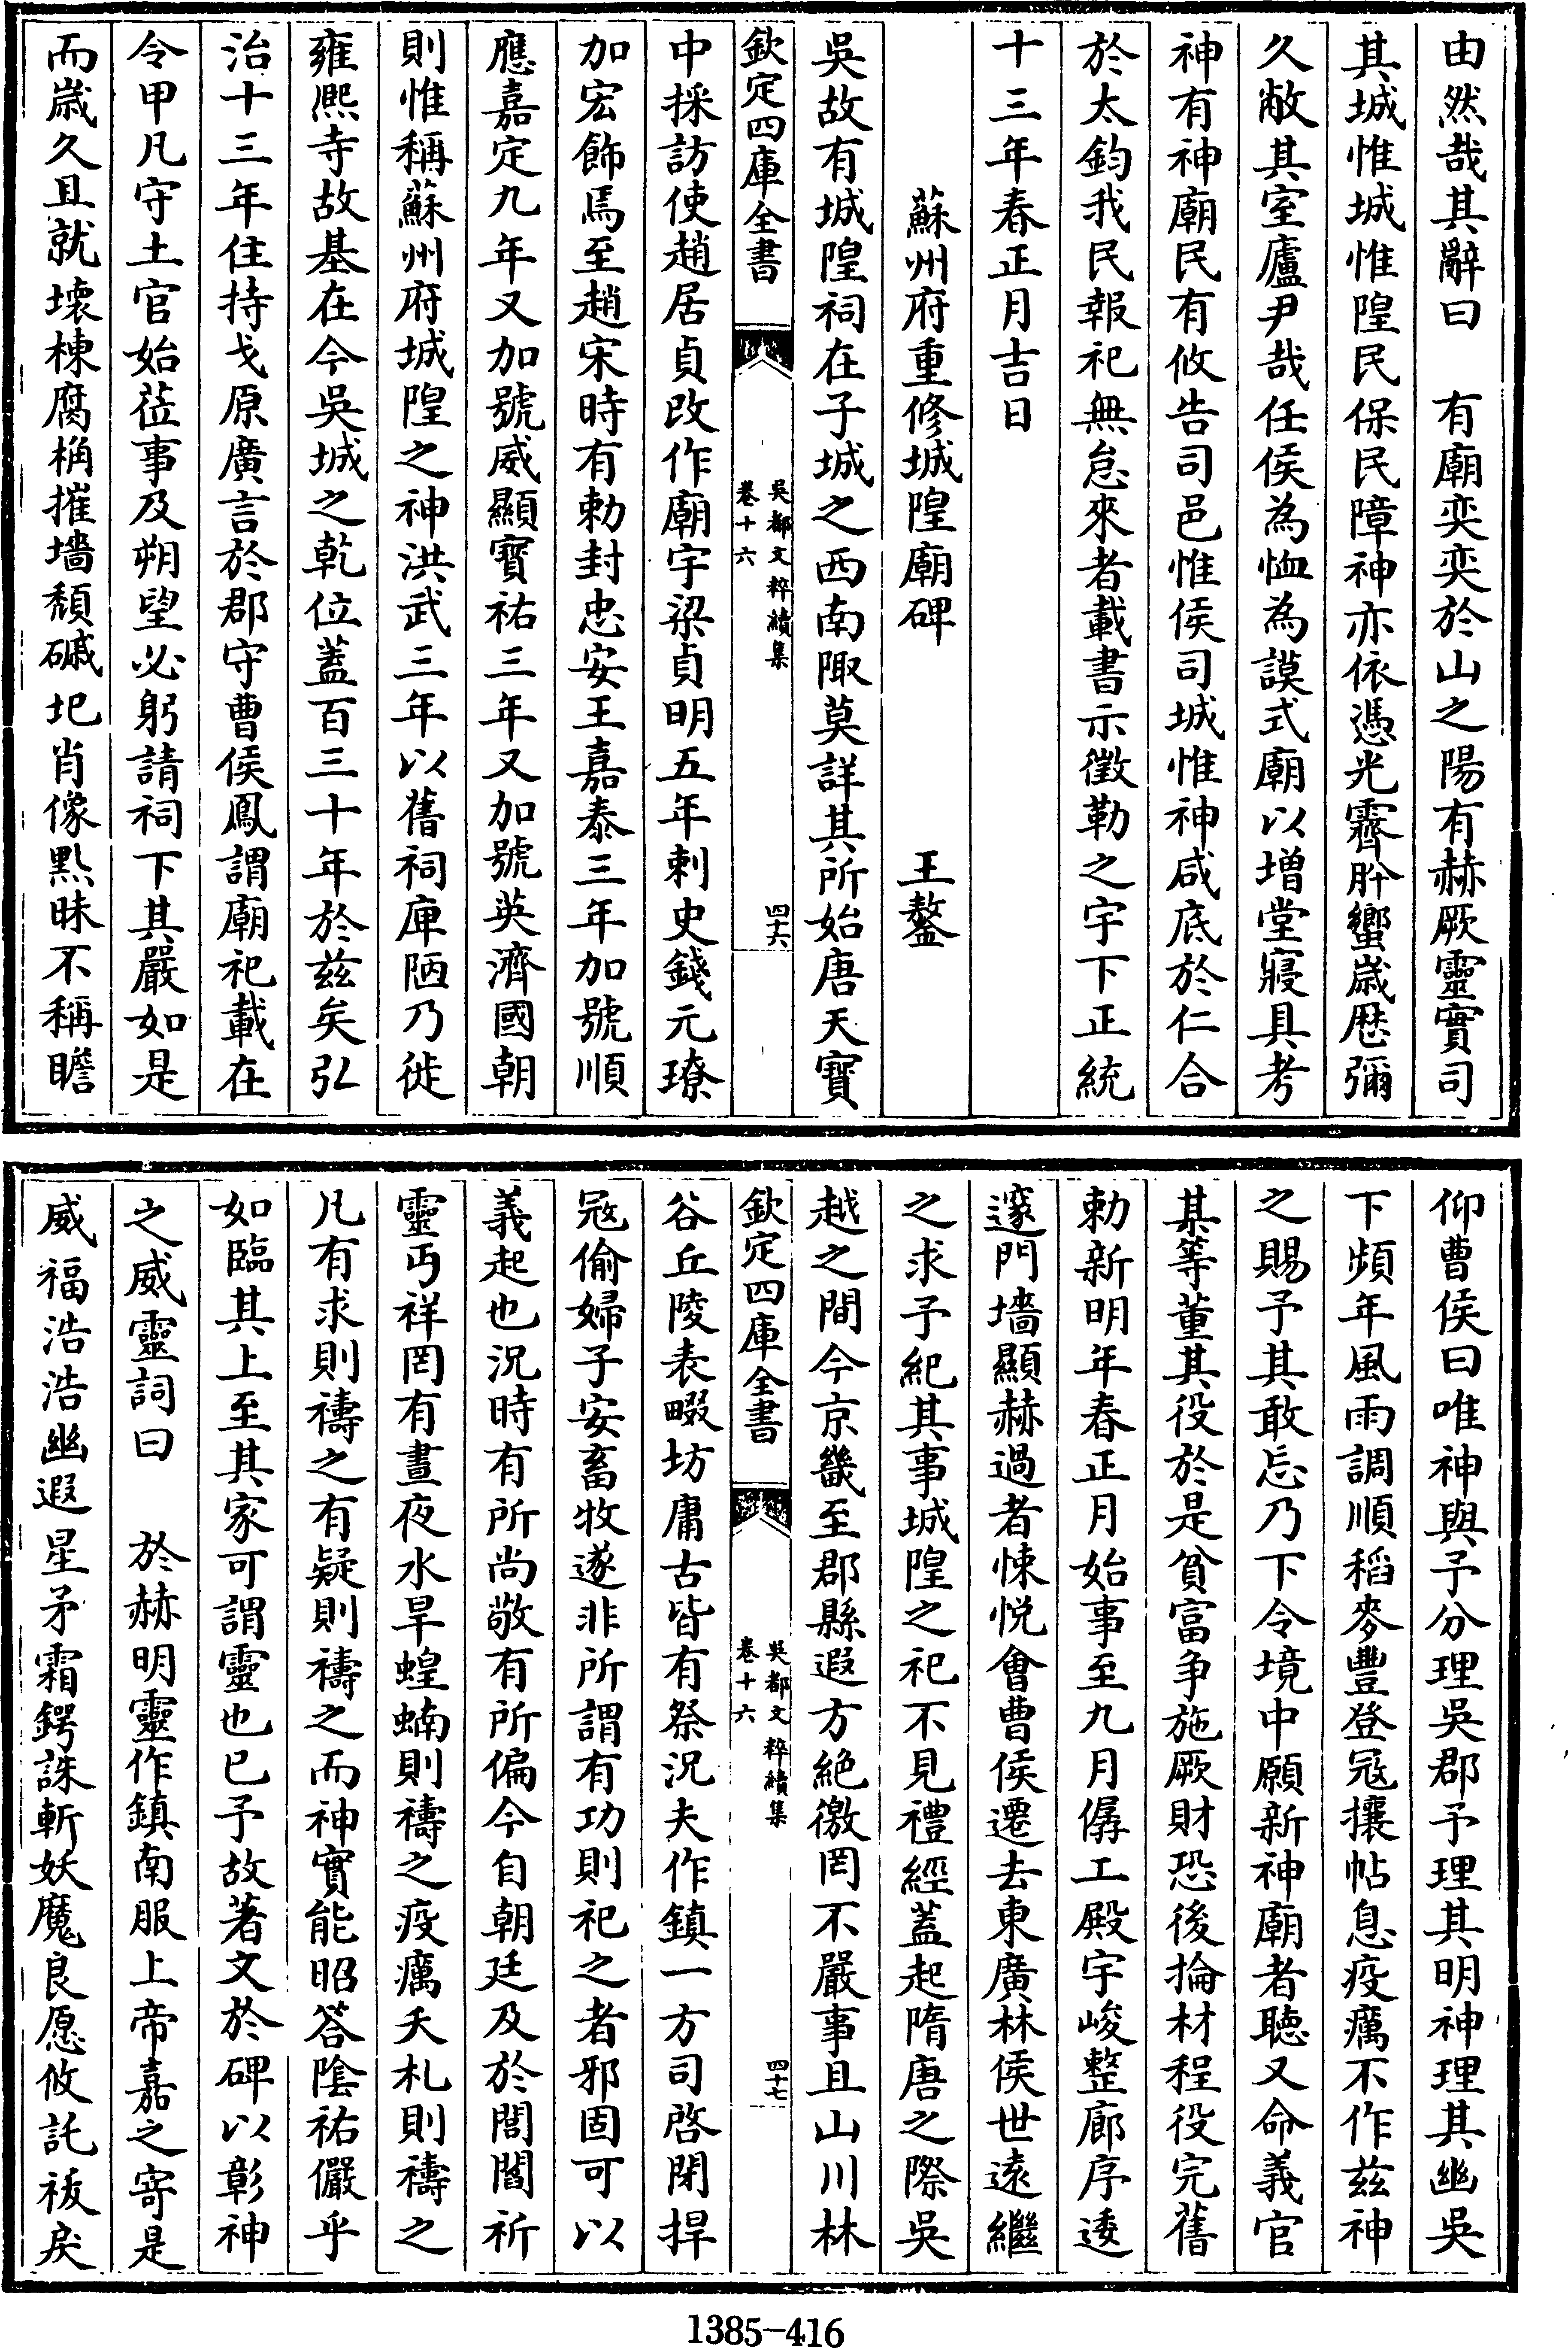 由然哉其辭曰　有廟奕奕於山之陽有赫厥靈實司
其城惟城惟隍民保民障神亦依憑光霽肸蠁歳歴彌
久敝其室廬尹哉任侯為恤為謨式廟以增堂寢具考
神有神廟民有攸告司邑惟侯司城惟神咸底於仁合
於太鈞我民報祀無怠來者載書示徵勒之宇下正統
十三年春正月吉日
蘇州府重修城隍廟碑　王鏊
吳故有城隍祠在子城之西南陬莫詳其所始唐天寳
欽定四庫全書
吳都文粹續集
卷十六
四十六
中採訪使趙居貞改作廟宇梁貞明五年刺史錢元璙
加宏飾焉至趙宋時有勅封忠安王嘉泰三年加號順
應嘉定九年又加號威顯寳祐三年又加號英濟國朝
則惟稱蘇州府城隍之神洪武三年以舊祠庳陋乃徙
雍熙寺故基在今吳城之乾位蓋百三十年於兹矣弘
治十三年住持戈原廣言於郡守曹侯鳳謂廟祀載在
令甲凡守土官始莅事及朔望必躬請祠下其嚴如是
而歳久且就壊棟腐桷摧墻頽磩圮肖像㸃昧不稱瞻
仰曹侯曰唯神與予分理吳郡予理其明神理其幽吳
下頻年風雨調順稻麥豐登冦攘帖息疫癘不作兹神
之賜予其敢忘乃下令境中願新神廟者聽又命義官
某等董其役於是貧富争施厥財恐後掄材程役完舊
勅新明年春正月始事至九月僝工殿宇峻整廊序逶
邃門墻顯赫過者悚悦會曹侯遷去東廣林侯世遠繼
之求予紀其事城隍之祀不見禮經蓋起隋唐之際吳
越之間今京畿至郡縣遐方絶徼罔不嚴事且山川林
欽定四庫全書
吳都文粹續集
卷十六
四十七
谷丘陵表畷坊庸古皆有祭況夫作鎮一方司啓閉捍
冦偷婦子安畜牧遂非所謂有功則祀之者邪固可以
義起也況時有所尚敬有所偏今自朝廷及於閭閻祈
靈丐祥罔有晝夜水旱蝗蝻則禱之疫癘夭札則禱之
凡有求則禱之有疑則禱之而神實能昭答隂祐儼乎
如臨其上至其家可謂靈也已予故著文於碑以彰神
之威靈詞曰　於赫明靈作鎮南服上帝嘉之寄是
威福浩浩幽遐星矛霜鍔誅斬妖魔良愿攸託祓戾
1385-416